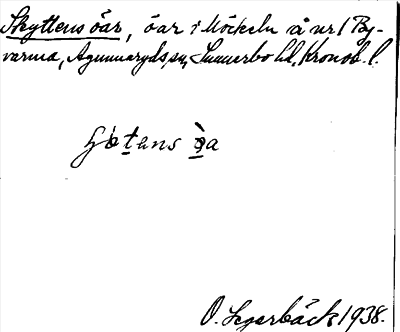 Skyttens öar, öar i Möckeln å nr 1 By-
varma, Agunnaryds sn, Sunnerbo hd, Kronob. l.
ens òa
O. Legerbäck 1938.